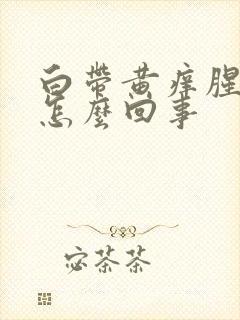 白帶黃痒腥
怎麼回事
宓茶茶